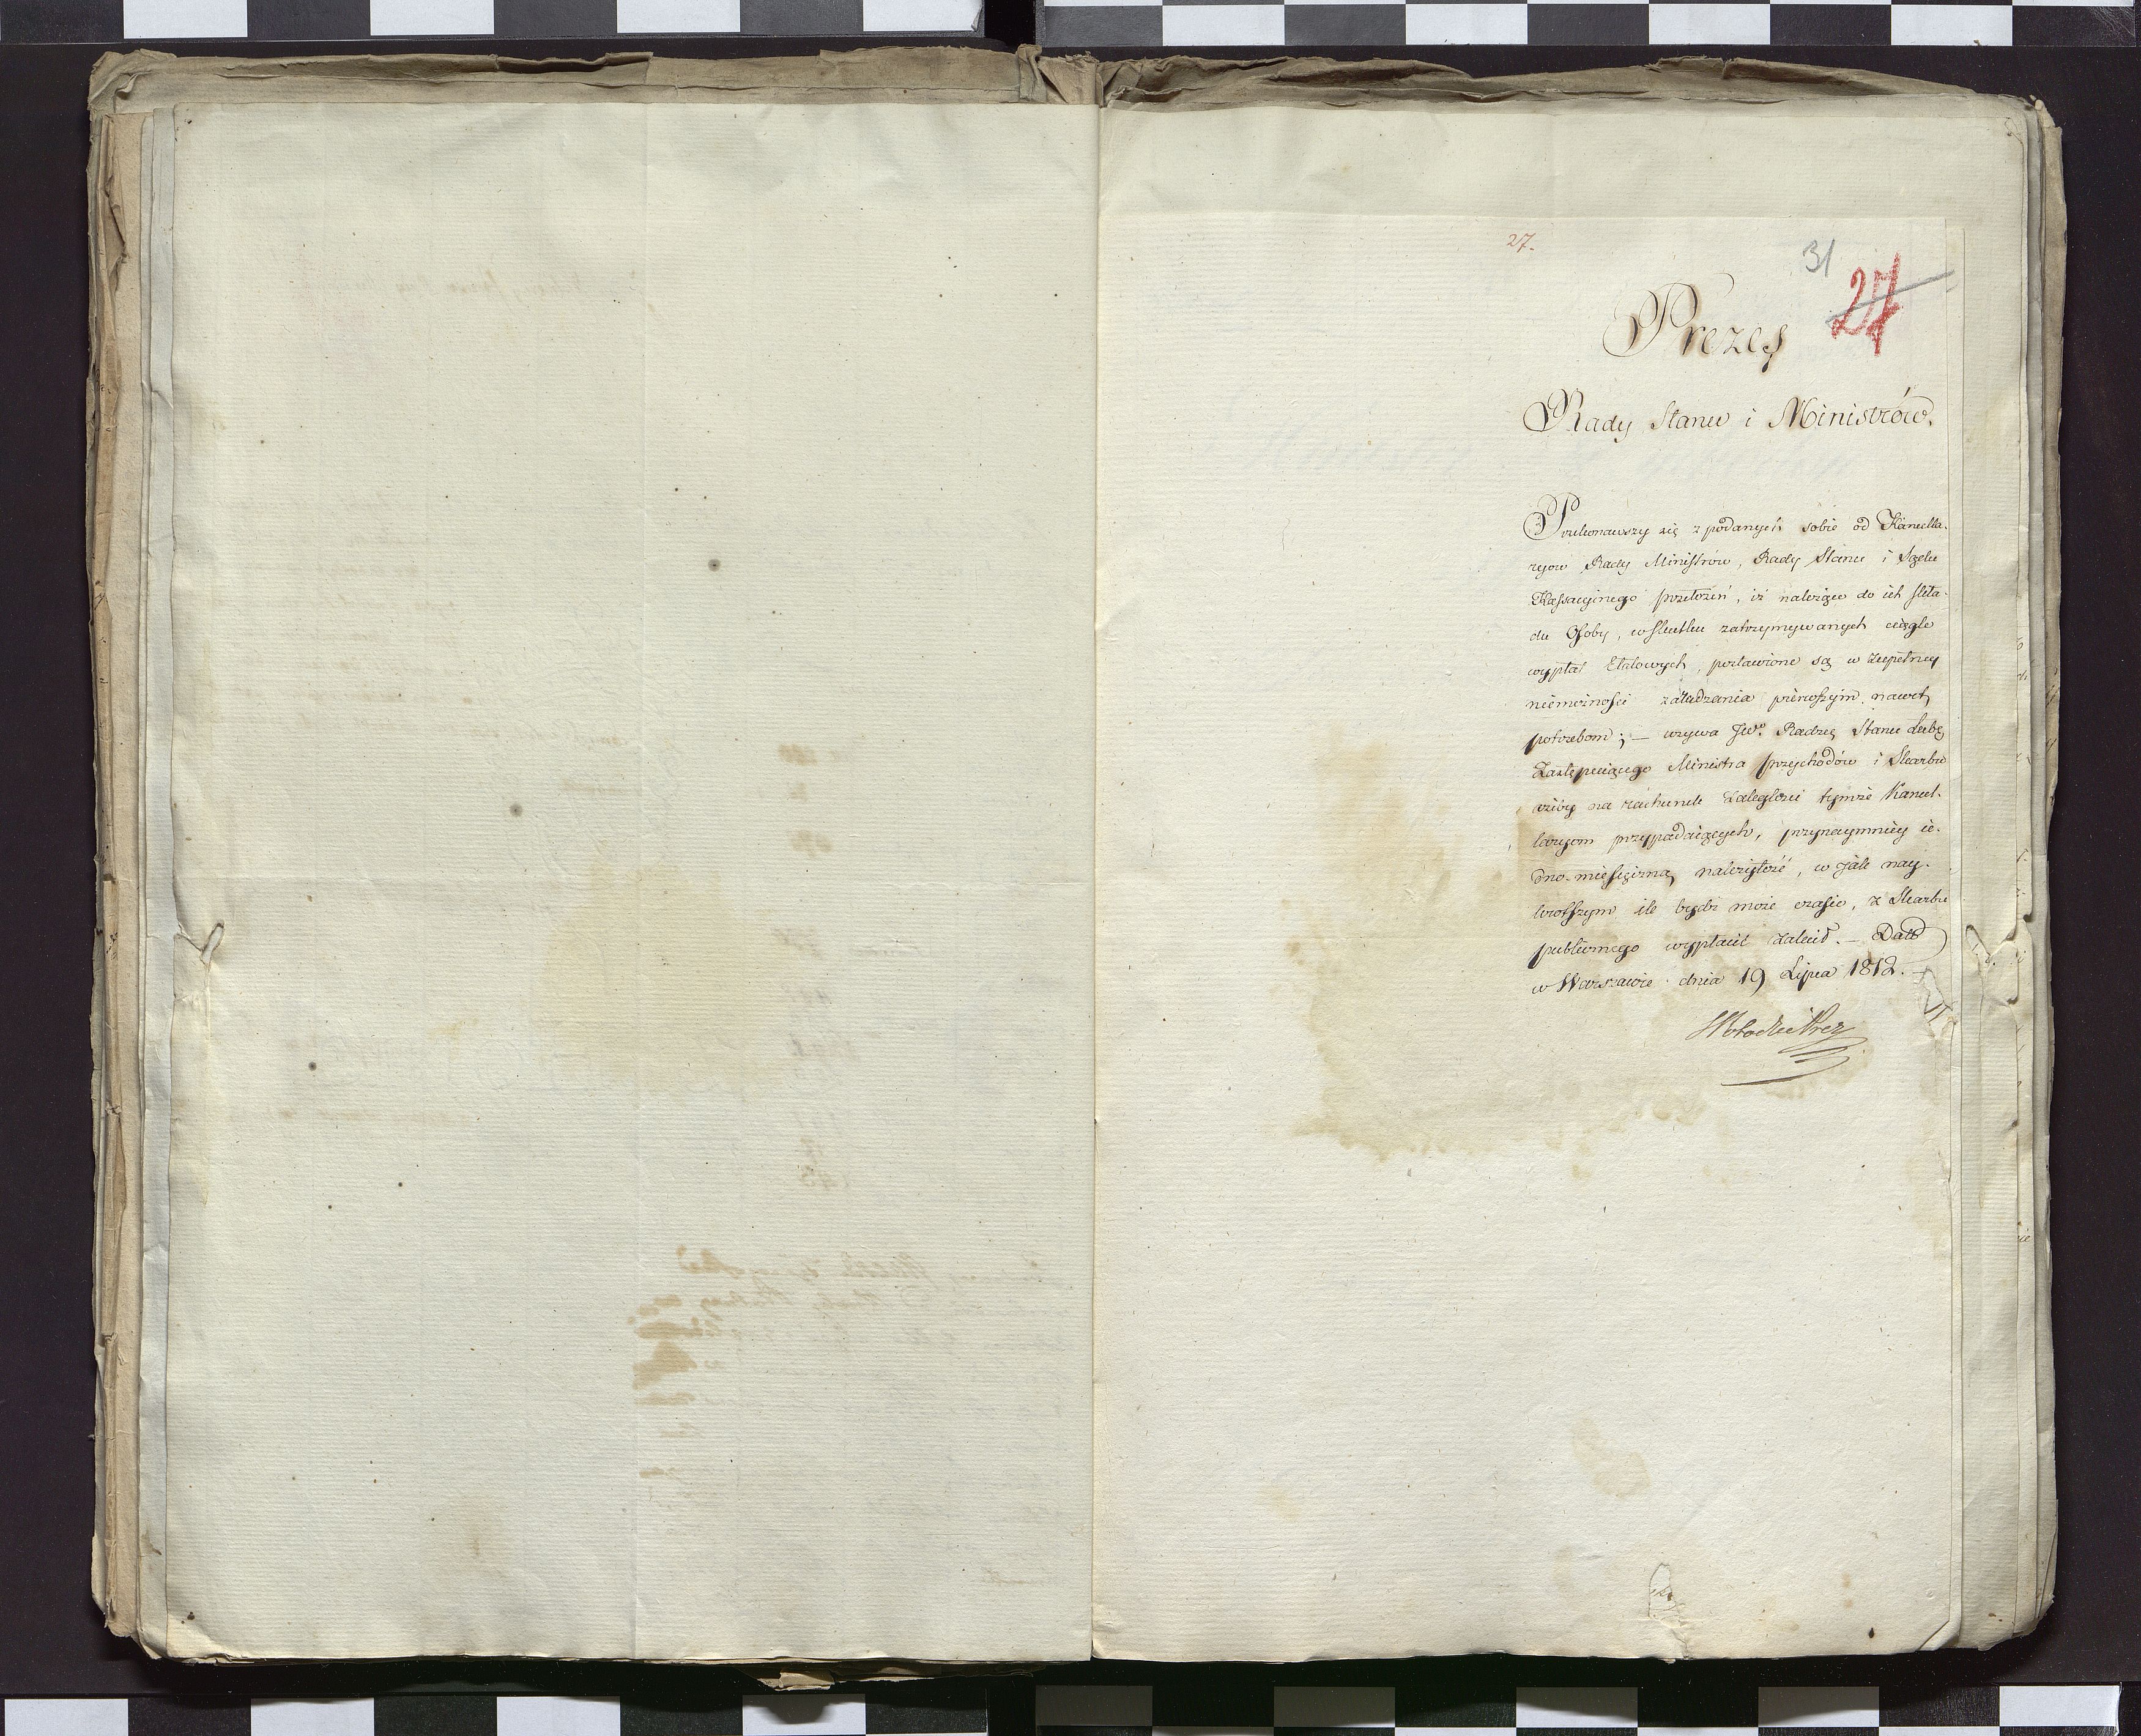 27.
31
27
Prezes
Rady Stanu i Ministrów.
Przekonawszy się z podanych sobie od Kancella-
ryów Rady Ministrów, Rady Stanu i Sądu
Kassacyinego przełożeń, iż należące do ich skła-
du Osoby, w skutku zatrzymywanych ciągle
wypłat Etatowych, postawione są w zupełney
niemożności zaradzenia pierwszym nawet
potrzebom; — wzywa JW°. Radzcę Stanu Łubę
Zastępuiącego Ministra przychodów i Skarbu
ażeby na rachunek zaległości tymże Kancel-
laryom przypadaiących, przynaymniey ie-
dno-miesięczną należytość, w jak nay-
krotszym ile bydź może czasie, z Skarbu
publicznego wypłacić zalecił. — Datt
w Warszawie dnia 19 Lipca 1812. —